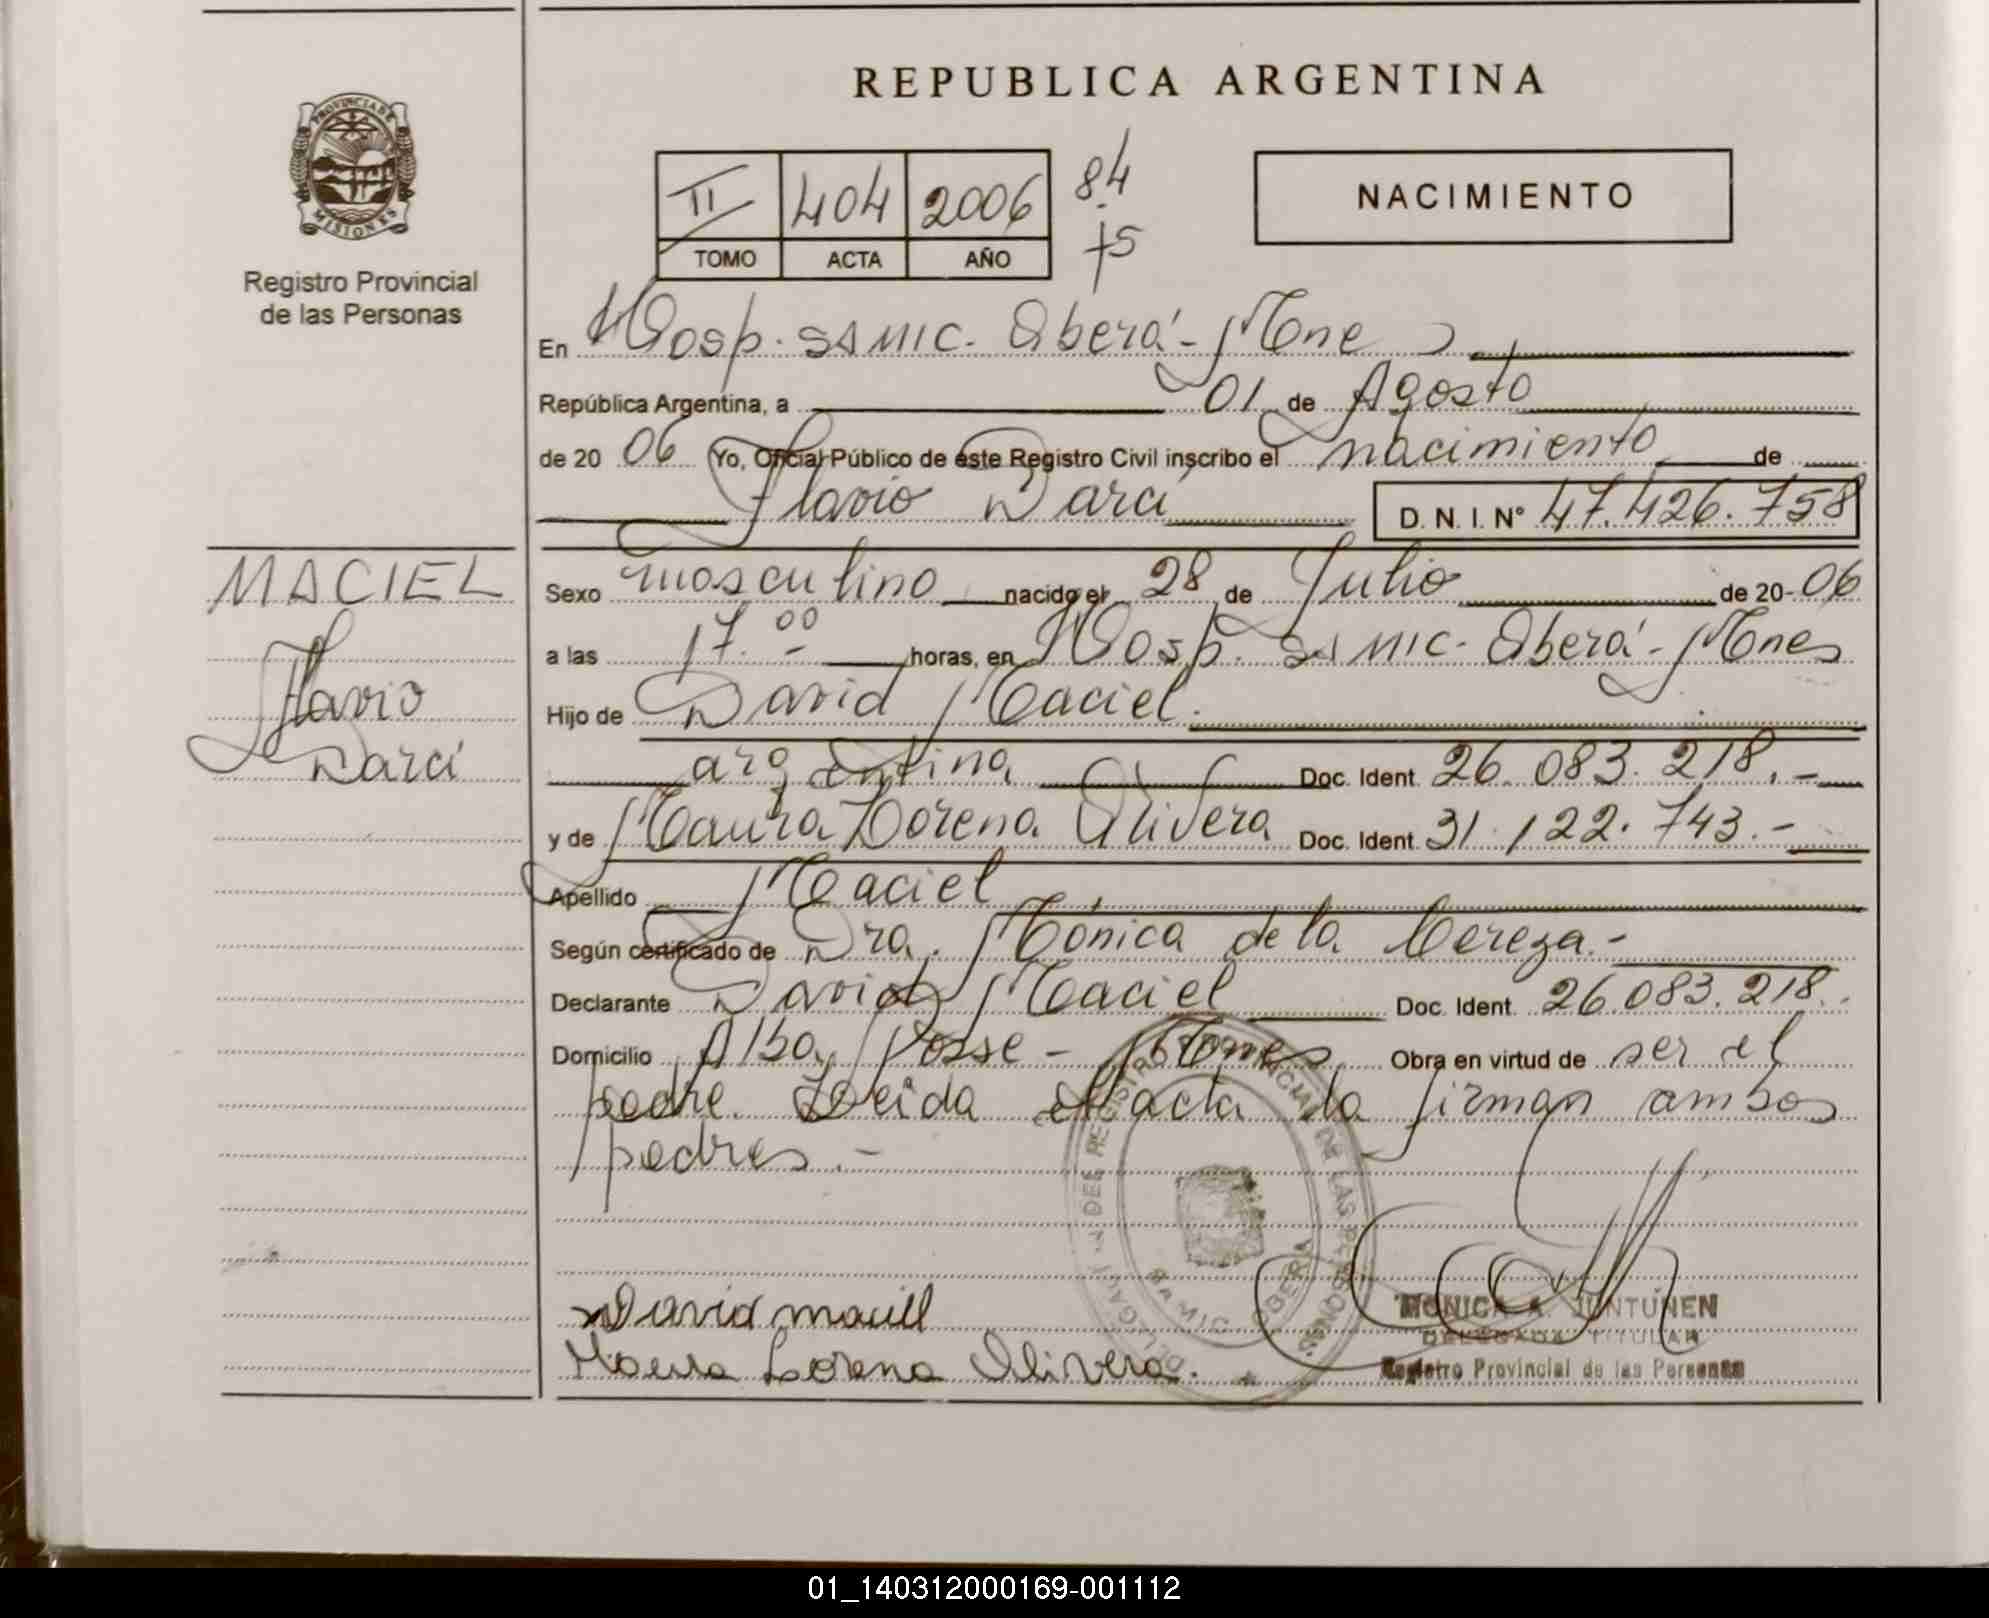 REPUBLICA ARGENTINA
PROVINCIA DE
MISIONES
Registro Provincial
de las Personas
II 404 2006
TOMO ACTA AÑO
84
NACIMIENTO
En Hosp. SAMIC. Oberá - Mnes
República Argentina, a 01 de Agosto
de 20 06 Yo, Oficial Público de este Registro Civil inscribo el nacimiento de
Flavio Darci D. N. I. N° 47.426.758
MACIEL
Flavio
Darci
Sexo masculino nacido el 28 de Julio de 20-06
a las 17.00 horas, en Hosp. SAMIC. Oberá - Mnes
Hijo de David Maciel.
argentina Doc. Ident. 26.083.218.-
y de Maura Lorena Olivera Doc. Ident. 31.122.743.-
Apellido Maciel
Según certificado de Dra. Mónica de la Cereza.-
Declarante David Maciel Doc. Ident. 26.083.218.
Domicilio Alba Posse - Mones Obra en virtud de ser el
padre. Leida el acta la firman ambos
padres.-
DELEGACION DEL REGISTRO PROVINCIAL DE LAS PERSONAS
SAMIC OBERA
David
Lorena Olivera.
MONICA A. JUNTUNEN
DELEGADA TITULAR
Registro Provincial de las Personas
01_140312000169-001112